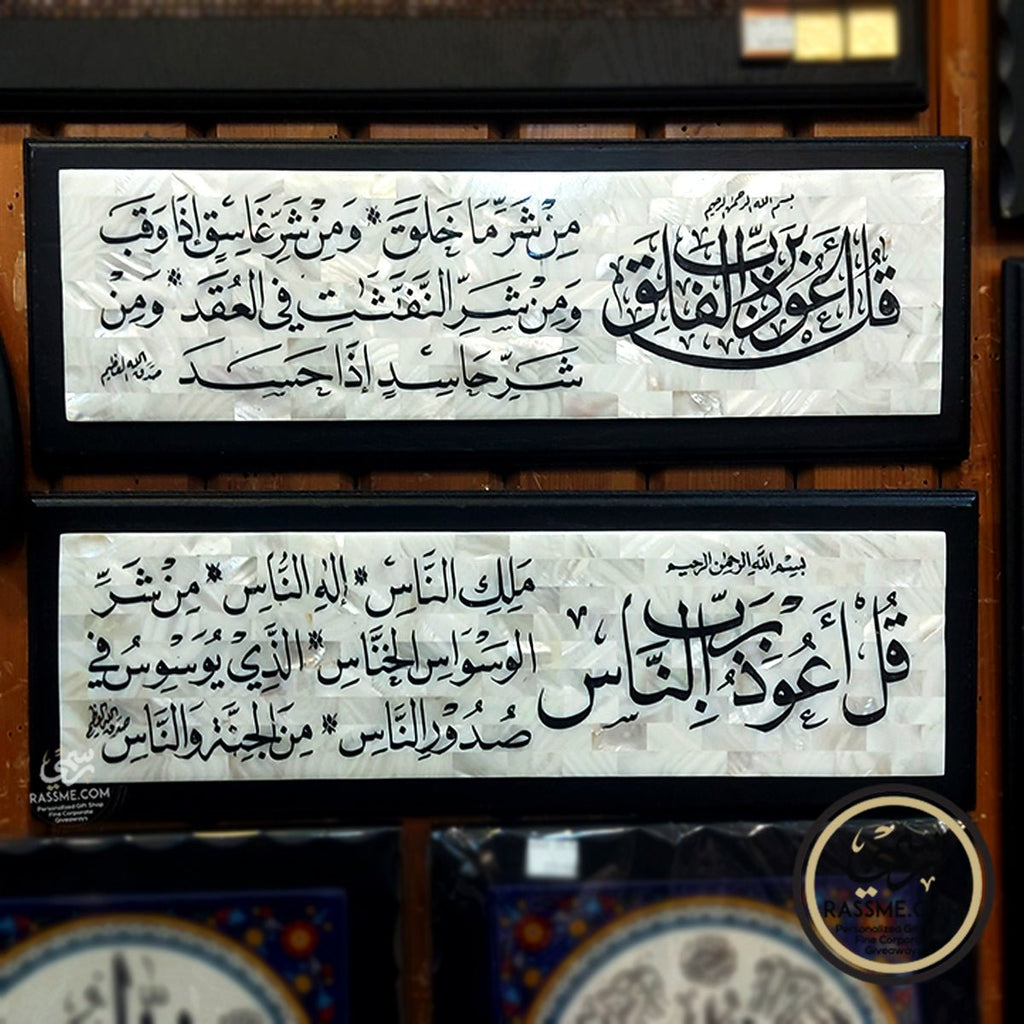 بسم الله الرحمن الرحيم
قُلْ أَعُوذُ بِرَبِّ الفَلَقِ
مِنْ شَرِّ مَا خَلَقَ * وَمِنْ شَرِّ غَاسِقٍ إِذَا وَقَبَ
وَمِنْ شَرِّ النَّفَّثَتِ فِي العُقَدِ * وَمِنْ
شَرِّ حَاسِدٍ إِذَا حَسَدَ
صدق الله العظيم
بسم الله الرحمن الرحيم
قُلْ أَعُوذُ بِرَبِّ النَّاسِ
مَلِكِ النَّاسِ * إِلَهِ النَّاسِ * مِنْ شَرِّ
الوَسْوَاسِ الخَنَّاسِ * الَّذِيْ يُوَسْوِسُ فِي
صُدُوْرِ النَّاسِ * مِنَ الجِنَّةِ وَالنَّاسِ
صدق الله العظيم
رسمي
RASSME.COM
Personalized Gift Shop
Fine Corporate
Giveaways
رسمي
RASSME.C
Personalized Gif
Fine Corpora
Giveaways